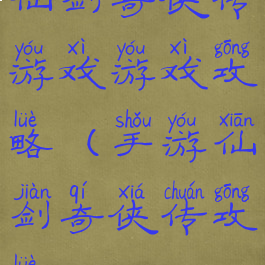 仙剑奇侠传
yóu xì yóu xì gōng
游戏游戏攻
lüè shǒu yóu xiān
略（手游仙
jiàn qí xiá chuán gōng
剑奇侠传攻
lüè